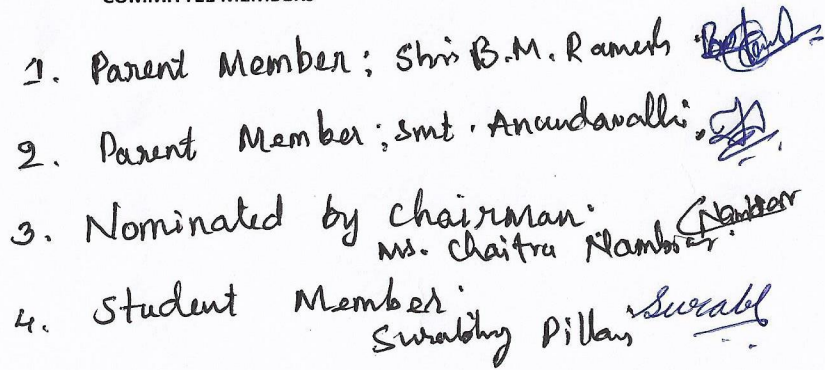 COMMITTEE MEMBERS
1. Parent Member; Shri B.M. Ramesh
2. Parent Member; Smt. Anandavalli,
3. Nominated by Chairman.
Ms. Chaitra Nambiar. Nambiar
4. Student Member.
Surabhy Pillai Surabhi